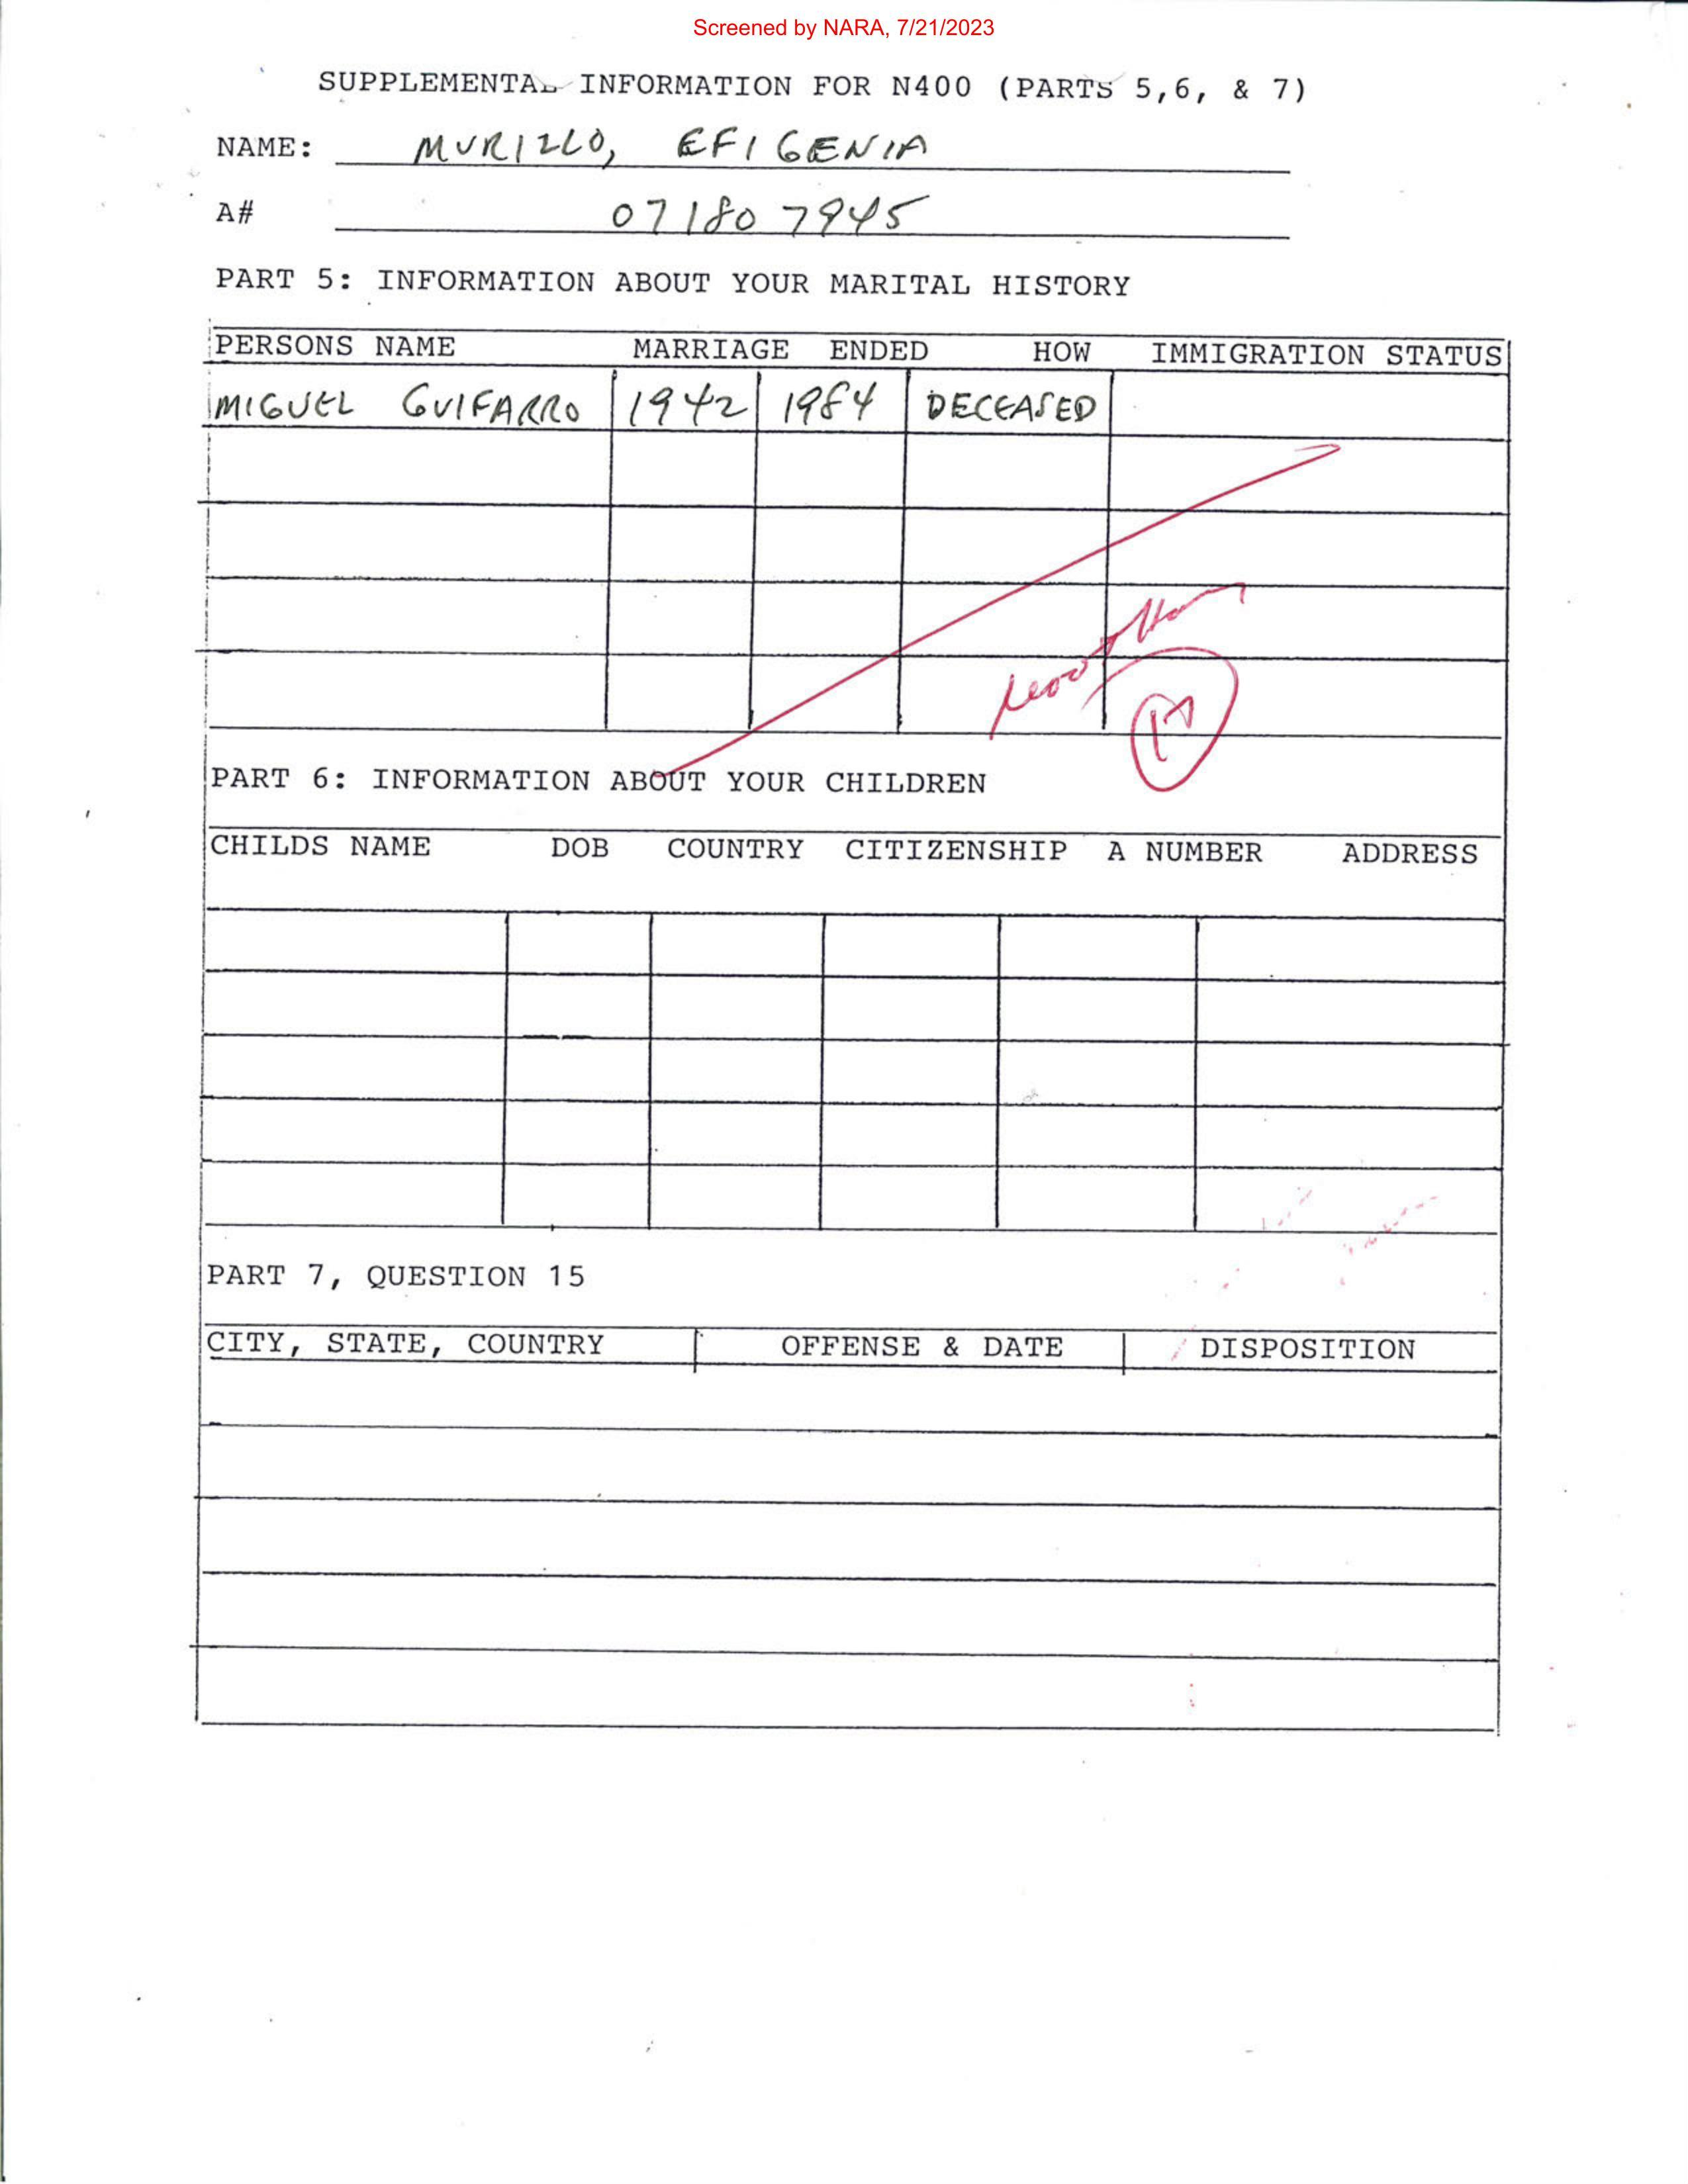 Screened by NARA, 7/21/2023
SUPPLEMENTAL INFORMATION FOR N400 (PARTS 5,6, & 7)
NAME: MURILLO, EFIGENIA
A# 071807945
PART 5: INFORMATION ABOUT YOUR MARITAL HISTORY
PERSONS NAME MARRIAGE ENDED HOW IMMIGRATION STATUS
MIGUEL GUIFARRO 1942 1984 DECEASED
PART 6: INFORMATION ABOUT YOUR CHILDREN
CHILDS NAME DOB COUNTRY CITIZENSHIP A NUMBER ADDRESS
PART 7, QUESTION 15
CITY, STATE, COUNTRY OFFENSE & DATE DISPOSITION